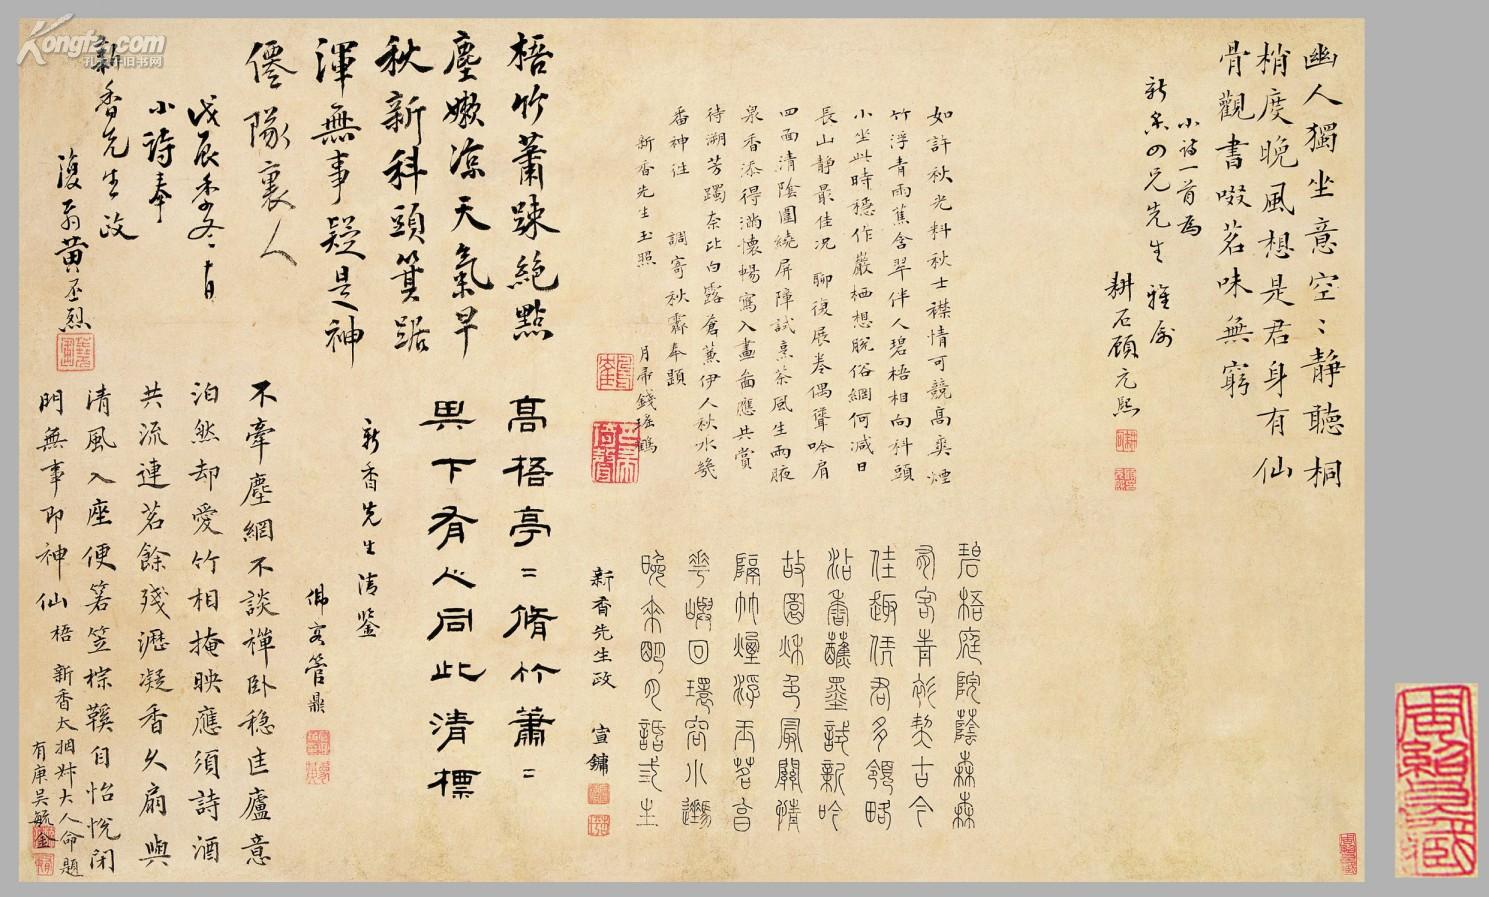 幽人獨坐意空〻靜聽桐
梢度晚風想是君身有仙
骨觀書啜茗味無窮
小詩一首為
新香四兄先生 雅令
耕石顧元熙
如許秋光料秋士襟情可競高爽煙
竹浮青雨蕉含翠伴人碧梧相向科頭
小坐此時穩作巖栖想脫俗網何減日
長山靜最佳況 聊復展卷偶聳吟肩
四面清陰圍繞屏障試烹茶風生兩腋
泉香添得滿懷暢寫入畫圖應共賞
待溯芳躅奈此白露蒼葭伊人秋水幾
番神往 調寄秋霽奉題
新香先生玉照 月帚錢瑤鶴
碧梧庭院蔭森森
有客青衫契古今
佳趣恁君多領略
沾書蘸墨試新吟
故園秋色最關情
隔竹煙浮玉茗香
花嶼回環容小
晚來明月
新香先生政 宣鏞
梧竹蕭疎絕點
塵嫩涼天氣早
秋新科頭箕踞
渾無事疑是神
僊隊裏人
戊辰季冬十日
小詩奉
新香先生政
復翁黃丕烈
高梧亭〻脩竹蕭〻
其下有人同此清標
新香先生清鑒
佛客管鼎
不牽塵網不談禪卧穩匡廬意
泊然却愛竹相掩映應須詩酒
共流連茗餘殘瀝凝香久扇與
清風入座便箬笠棕鞵自怡悅閉
門無事即神仙
新香太姻丈大人命題
有庚吳毓金
周紹良藏
Kongfz.com
孔夫子旧书网